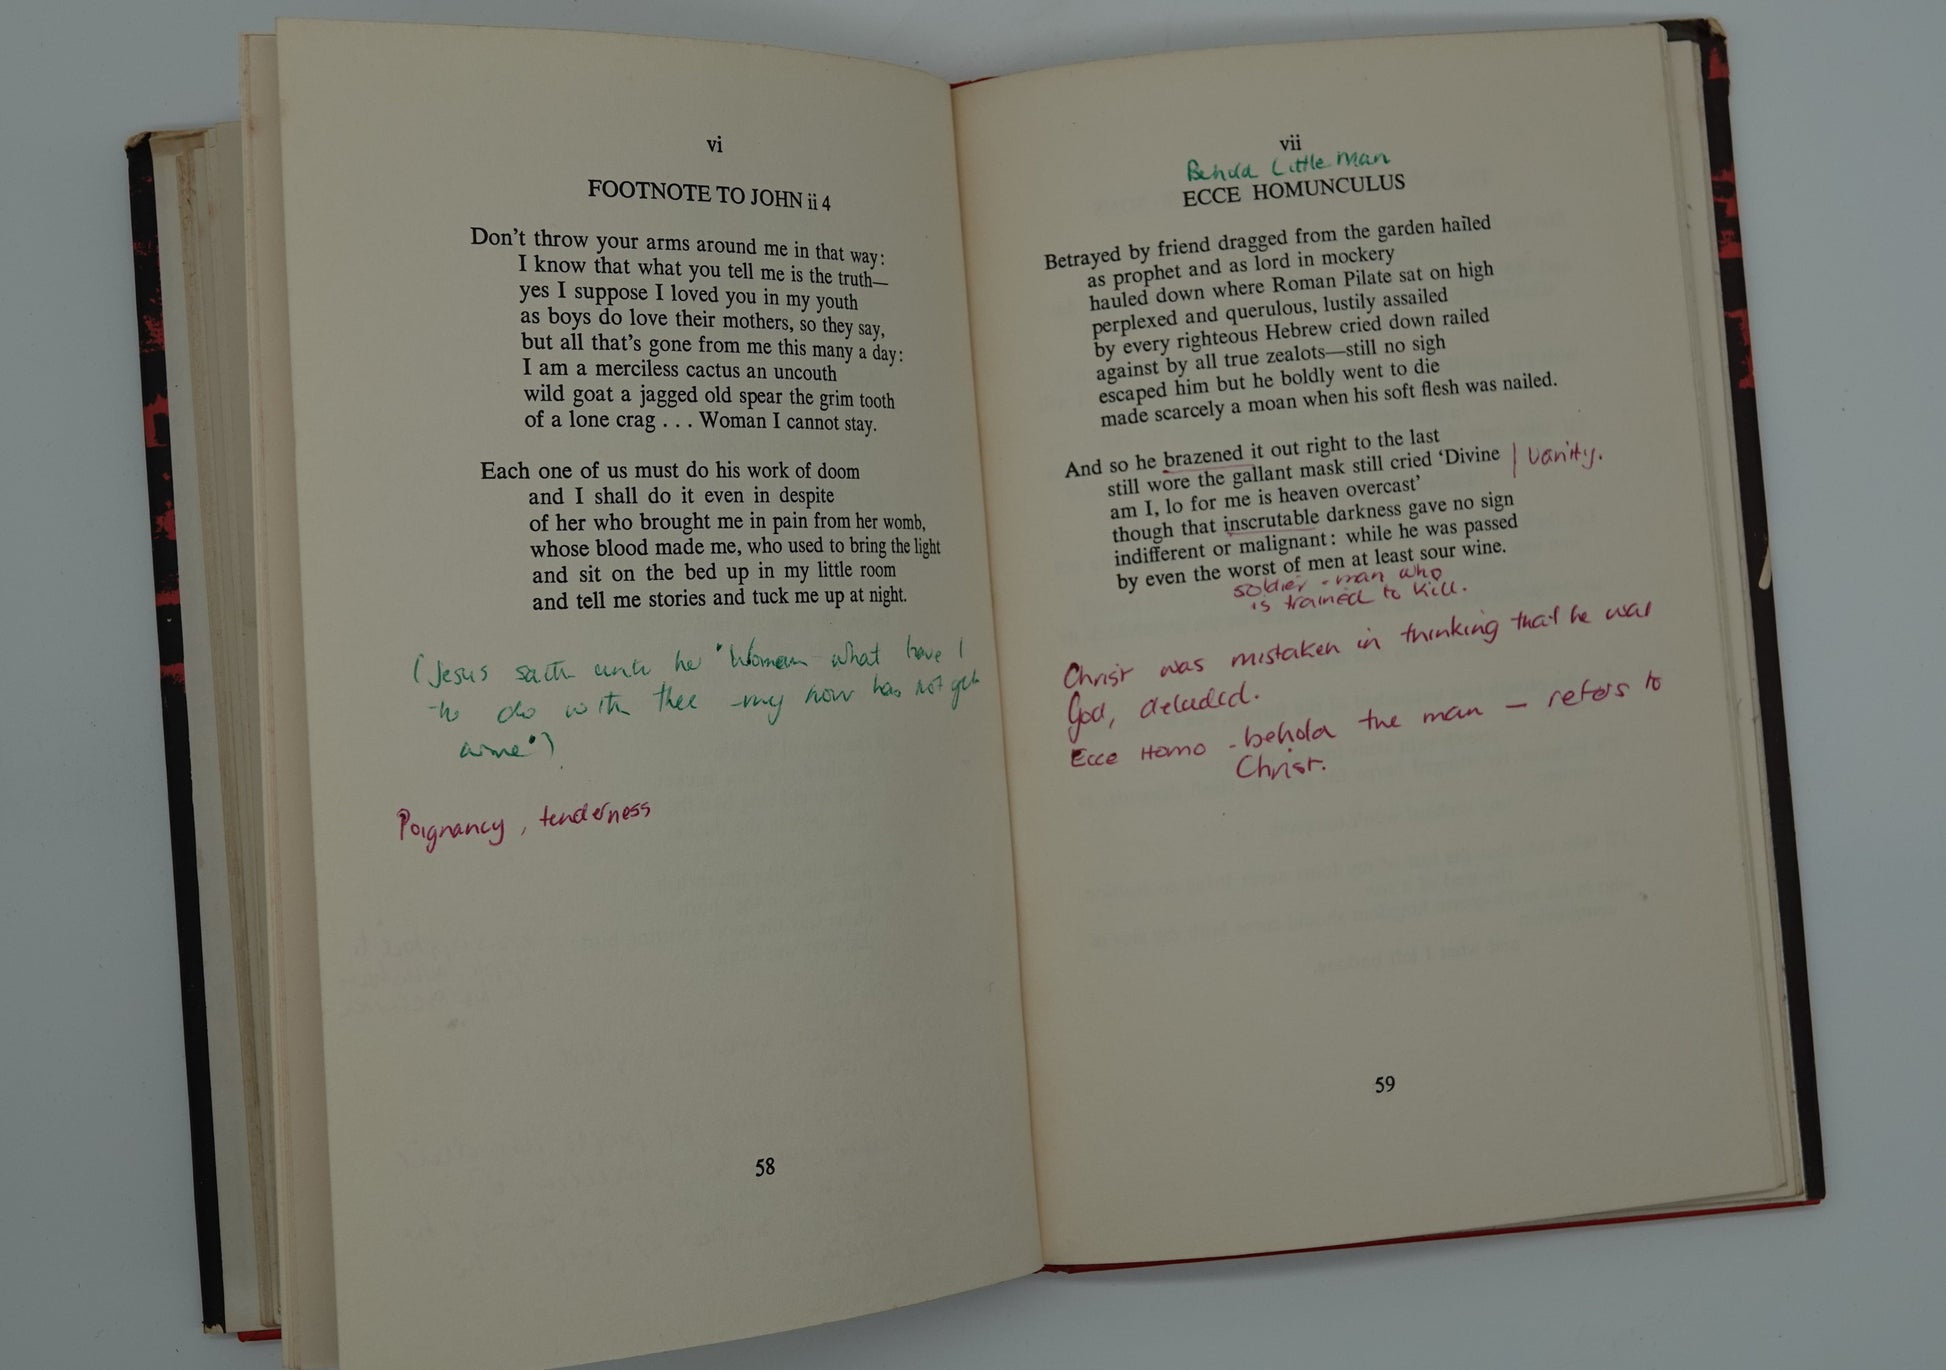 vi
FOOTNOTE TO JOHN ii 4
Don't throw your arms around me in that way:
I know that what you tell me is the truth—
yes I suppose I loved you in my youth
as boys do love their mothers, so they say,
but all that's gone from me this many a day:
I am a merciless cactus an uncouth
wild goat a jagged old spear the grim tooth
of a lone crag . . . Woman I cannot stay.
Each one of us must do his work of doom
and I shall do it even in despite
of her who brought me in pain from her womb,
whose blood made me, who used to bring the light
and sit on the bed up in my little room
and tell me stories and tuck me up at night.
(Jesus saith unto he "Woman what have I
to do with thee my how has not yet
")
Poignancy, tenderness
58
vii
Behold Little Man
ECCE HOMUNCULUS
Betrayed by friend dragged from the garden hailed
as prophet and as lord in mockery
hauled down where Roman Pilate sat on high
perplexed and querulous, lustily assailed
by every righteous Hebrew cried down railed
against by all true zealots—still no sigh
escaped him but he boldly went to die
made scarcely a moan when his soft flesh was nailed.
And so he brazened it out right to the last
still wore the gallant mask still cried 'Divine | vanity.
am I, lo for me is heaven overcast'
though that inscrutable darkness gave no sign
indifferent or malignant: while he was passed
by even the worst of men at least sour wine.
soldier - man who
is trained to kill.
Christ was mistaken in thinking that he was
God, deluded.
Ecce Homo - behold the man — refers to
Christ.
59